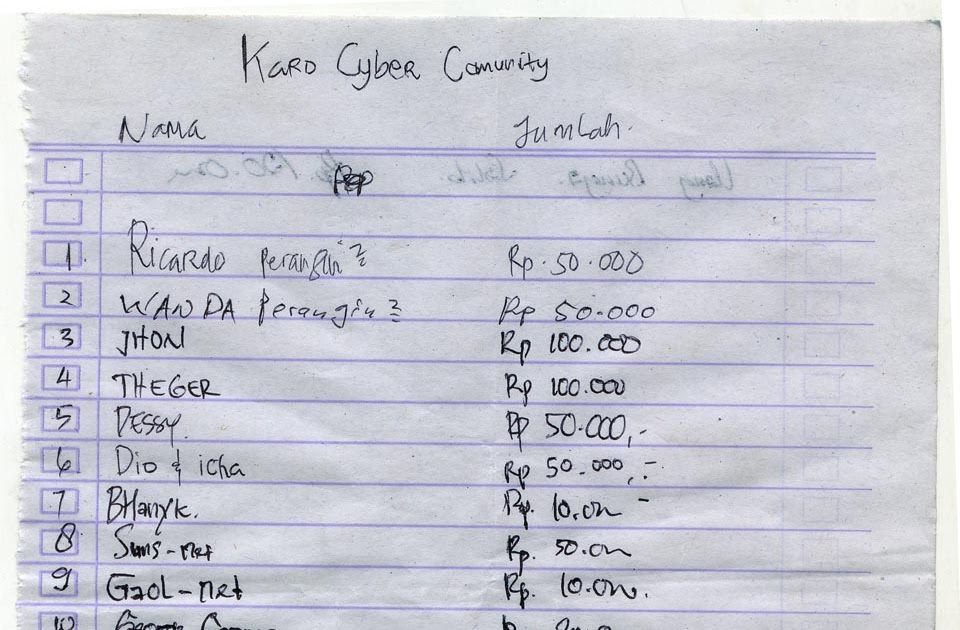 Karo Cyber Comunity
Nama Jumlah.
Rp
1 Ricardo Perangin² Rp. 50.000
2 WANDA Perangin² Rp 50.000
3 JHON Rp 100.000
4 THEGER Rp 100.000
5 DESSY. Rp 50.000,-
6 Dio & icha Rp 50.000,-
7 BHanyk. Rp. 10.000 -
8 Suns-net Rp. 50.000
9 Gaol-net Rp. 10.000.
10